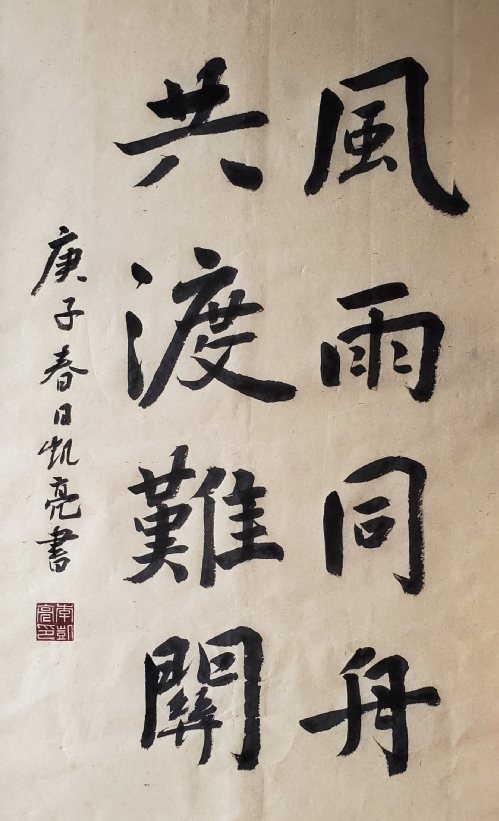 風雨同舟
共渡難關
庚子春日凱亮書